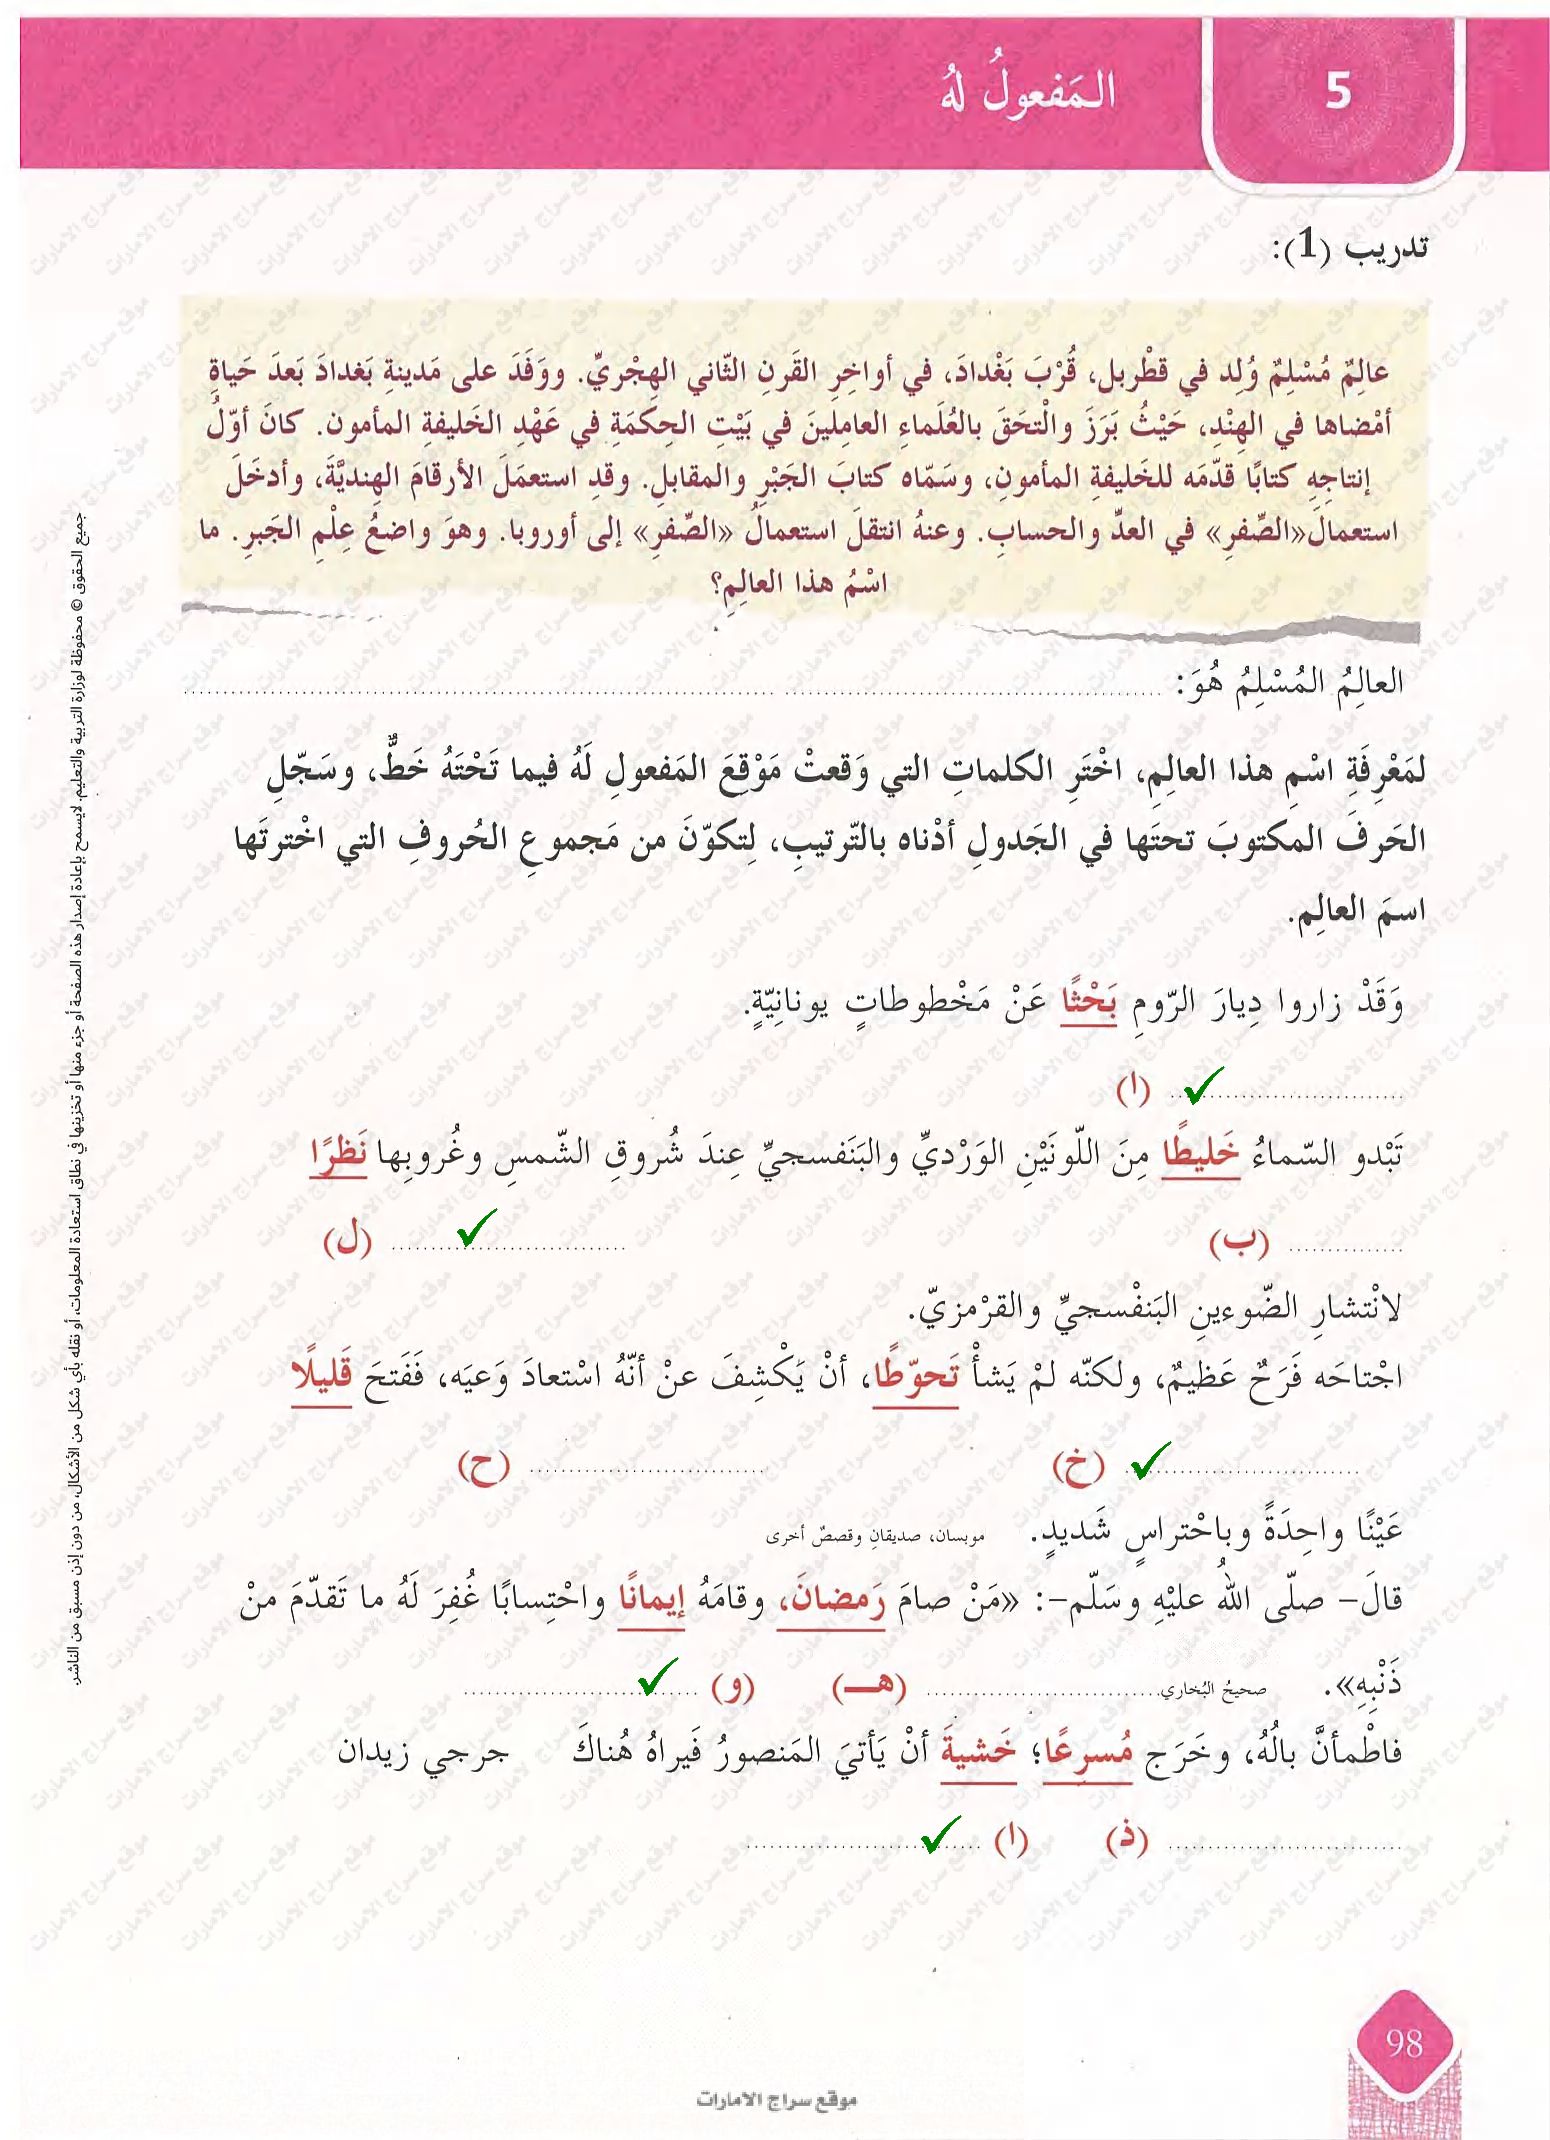 5
المَفعولُ لهُ
تدريب (1):
عالِمٌ مُسْلِمٌ وُلِد في قطْربل، قُرْبَ بَغْدادَ، في أواخِرِ القَرنِ الثّاني الهِجْريِّ. ووَفَدَ على مَدينةِ بَغدادَ بَعدَ حَياةٍ
أمْضاها في الهِنْدِ، حَيْثُ بَرَزَ والْتحَقَ بالعُلَماءِ العامِلينَ في بَيْتِ الحِكمَةِ في عَهْدِ الخَليفةِ المأمون. كانَ أوّلُ
إنتاجِهِ كتابًا قدّمَه للخَليفةِ المأمونِ، وسَمّاه كتابَ الجَبْرِ والمقابلِ. وقدِ استعمَلَ الأرقامَ الهِنديَّةَ، وأدخَلَ
استعمالَ«الصِّفرِ» في العدِّ والحسابِ. وعنهُ انتقلَ استعمالُ «الصِّفرِ» إلى أوروبا. وهوَ واضعُ عِلْمِ الجَبرِ. ما
اسْمُ هذا العالِمِ؟
العالِمُ المُسْلِمُ هُوَ:
لمَعْرِفَةِ اسْمِ هذا العالِمِ، اخْتَرِ الكلماتِ التي وَقعتْ مَوْقِعَ المَفعولِ لَهُ فيما تَحْتَهُ خَطٌّ، وسَجّلِ
الحَرفَ المكتوبَ تحتَها في الجَدولِ أدْناه بالتّرتيبِ، لِتكوّنَ من مَجموعِ الحُروفِ التي اخْترتَها
اسمَ العالِم.
وَقَدْ زاروا دِيارَ الرّومِ بَحْثًا عَنْ مَخْطوطاتٍ يونانِيّةٍ.
(ا)
تَبْدو السّماءُ خَليطًا مِنَ اللّونَيْنِ الوَرْديِّ والبَنَفسجيِّ عِندَ شُروقِ الشّمسِ وغُروبِها نَظرًا
(ب) (ل)
لانْتشارِ الضّوءينِ البَنفْسجيِّ والقرْمزيّ.
اجْتاحَه فَرَحٌ عَظيمٌ، ولكنّه لمْ يَشأْ تَحوّطًا، أنْ يَكْشِفَ عنْ أنّهُ اسْتعادَ وَعيَه، فَفَتحَ قَليلًا
(خ) (ح)
عَيْنًا واحِدَةً وباحْتراسٍ شَديدٍ. موبسان، صديقانِ وقصصٌ أخرى
قالَ- صلّى اللهُ عليْهِ وسَلّم-: «مَنْ صامَ رَمضانَ، وقامَهُ إيمانًا واحْتِسابًا غُفِرَ لَهُ ما تَقدّمَ منْ
ذَنْبِهِ». صحيحُ البُخاري (هـ) (و)
فاطْمأنَّ بالُهُ، وخَرَج مُسرِعًا؛ خَشيةَ أنْ يَأتيَ المَنصورُ فَيراهُ هُناكَ جرجي زيدان
(ذ) (ا)
جميع الحقوق © محفوظة لوزارة التربية والتعليم. لايسمح بإعادة إصدار هذه الصفحة أو جزء منها أو تخزينها في نطاق استعادة المعلومات، أو نقله بأي شكل من الأشكال، من دون إذن مسبق من الناشر.
98
موقع سراج الامارات